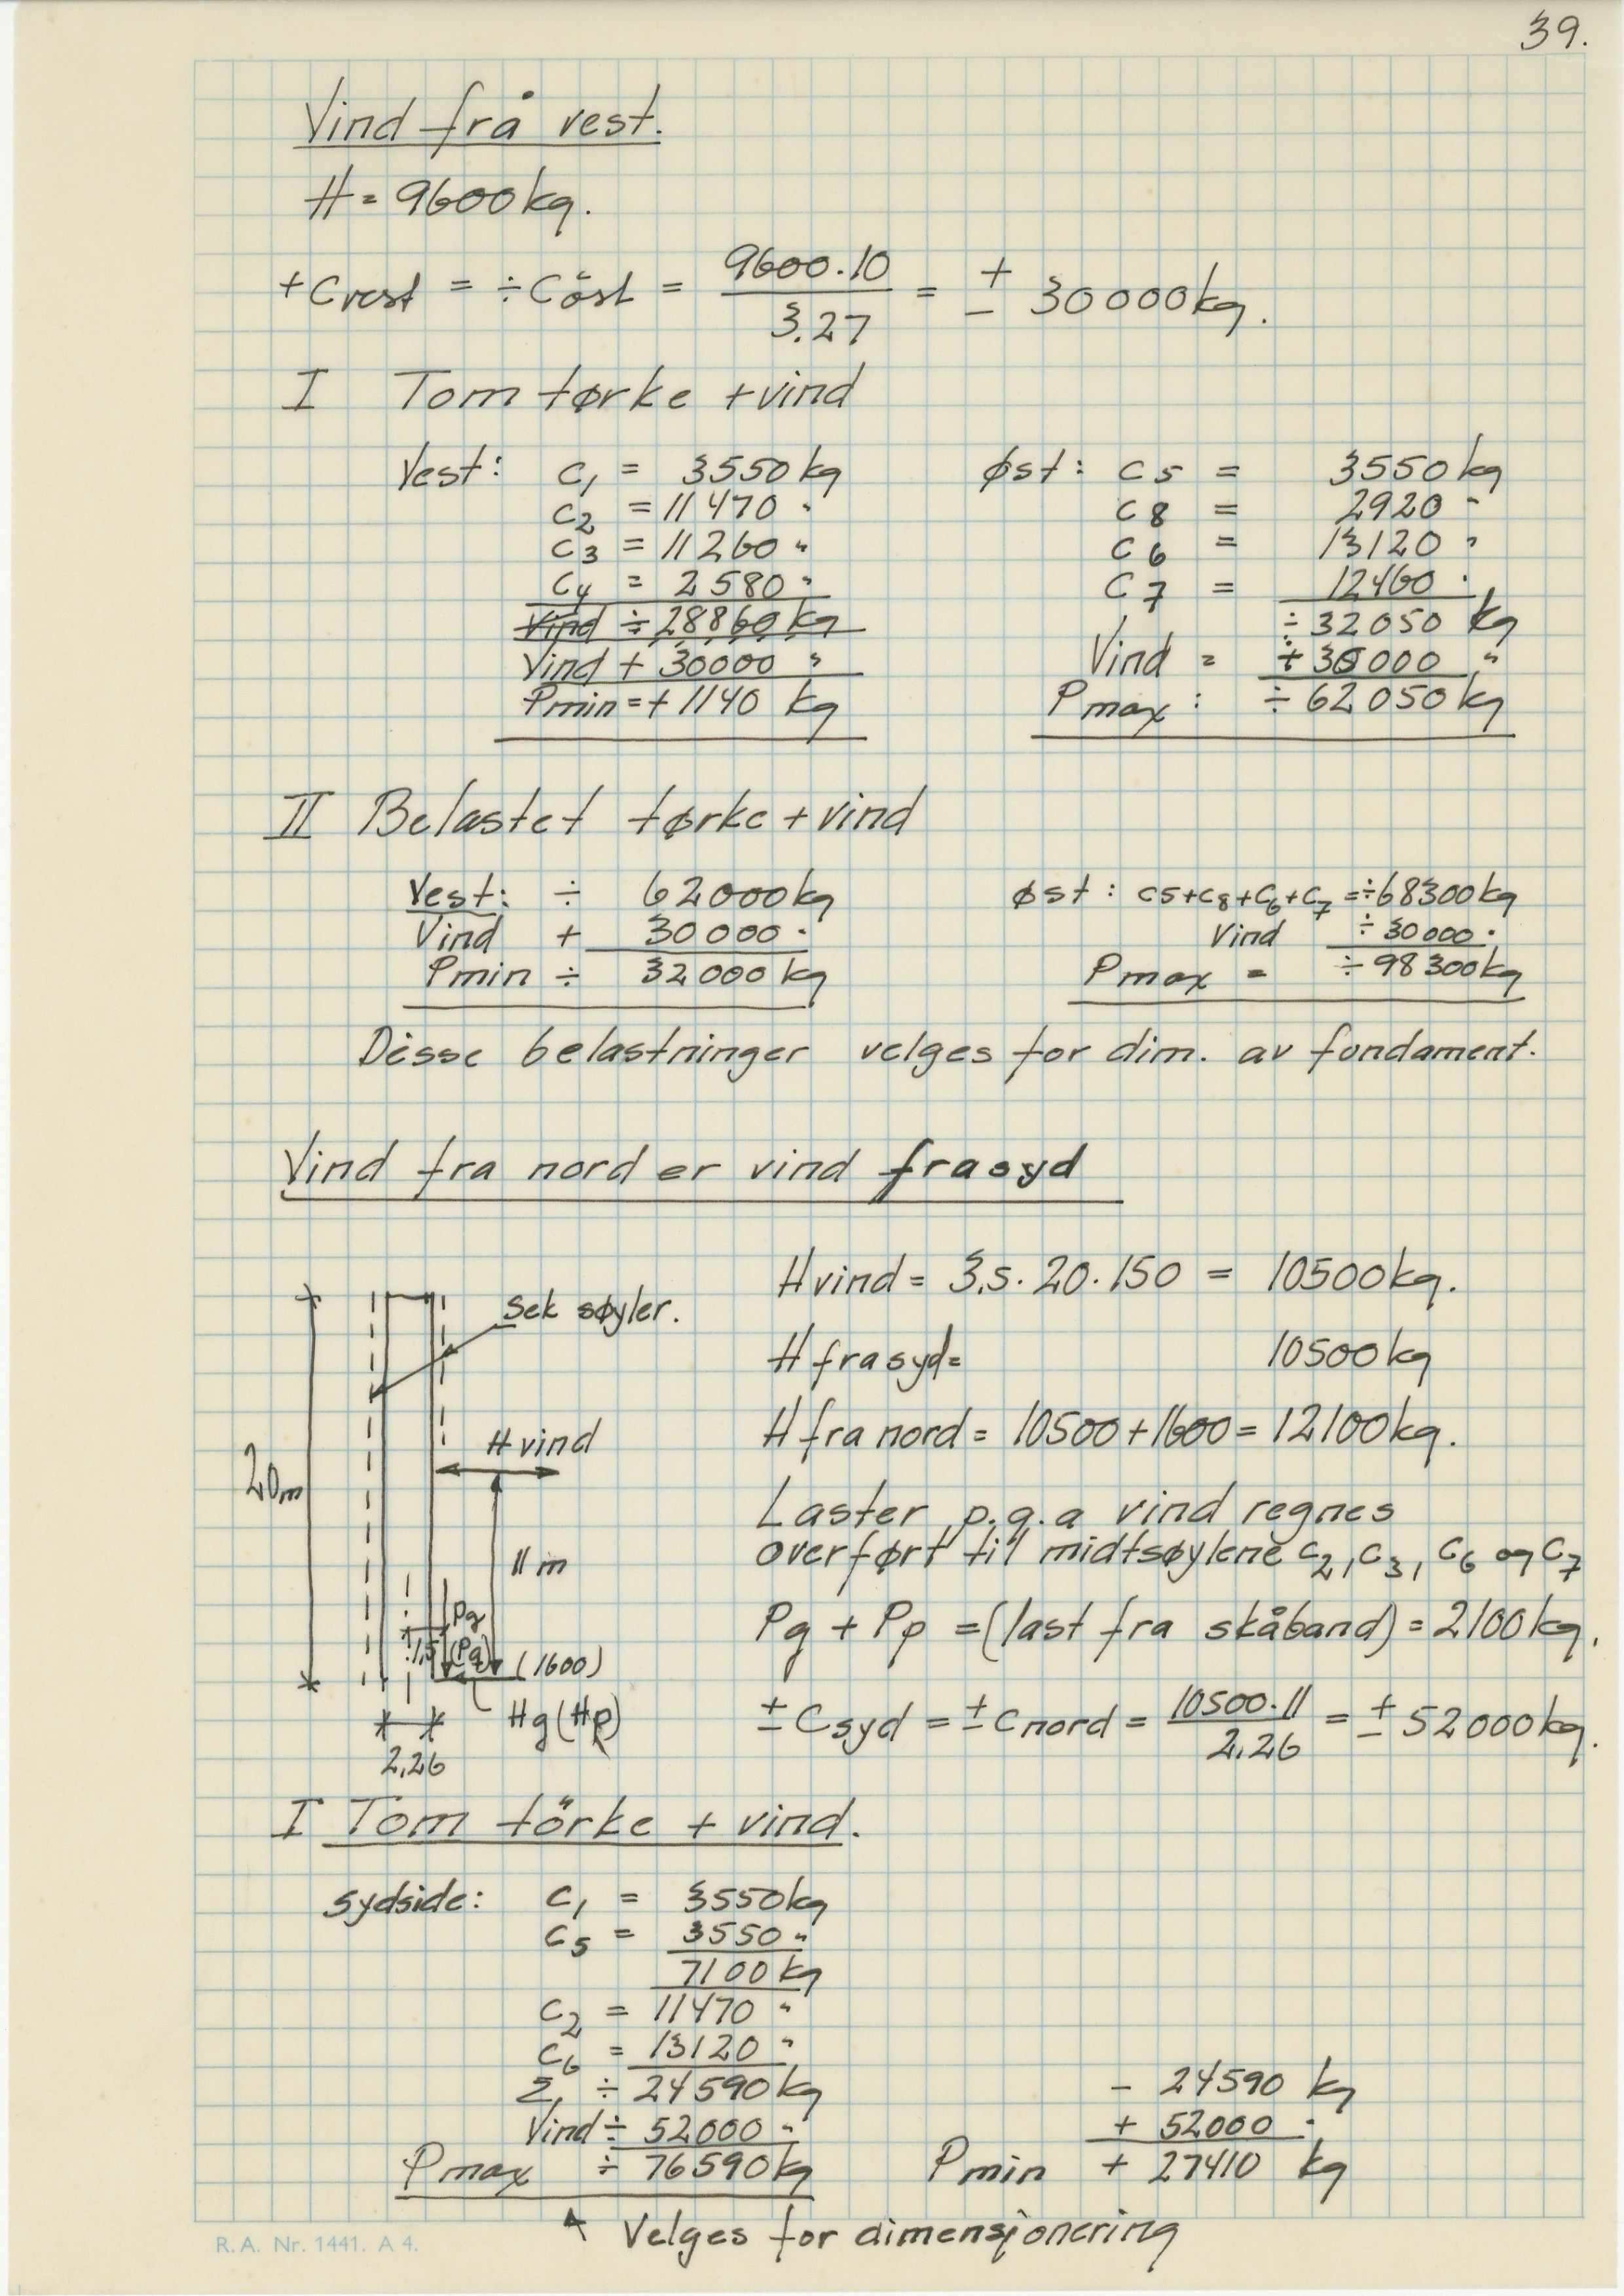 39.
Vind frå vest.
H = 9600 kg.
+Cvest = ÷Cöst = 9600·10 / 3.27 = ± 30000 kg.
I Tom tørke + vind
Vest: C1 = 3550 kg
C2 = 11470 "
C3 = 11260 "
C4 = 2580 "
Vind ÷ 28860 kg
Vind + 30000 "
Pmin = + 1140 kg
Øst: C5 = 3550 kg
C8 = 2920 "
C6 = 13120 "
C7 = 12460 "
÷ 32050 kg
Vind = ÷ 30000 "
Pmax : ÷ 62050 kg
II Belastet tørke + vind
Vest: ÷ 62000 kg
Vind + 30000 "
Pmin ÷ 32000 kg
Øst: C5+C8+C6+C7 = ÷68300 kg
Vind ÷ 30000 "
Pmax = ÷ 98300 kg
Disse belastninger velges for dim. av fundament.
Vind fra nord er vind fra syd
Sek søyler.
H vind
20m
11 m
Pg
1,5 (Pg) (1600)
Hg (Hp)
2,26
H vind = 3,5 · 20 · 150 = 10500 kg.
H fra syd = 10500 kg
H fra nord = 10500 + 1600 = 12100 kg.
Laster p.g.a vind regnes
overført til midtsøylene C2, C3, C6 og C7
Pg + Pp = (last fra skåband) = 2100 kg.
± Csyd = ± Cnord = 10500·11 / 2,26 = ± 52000 kg.
I Tom törke + vind.
Sydside: C1 = 3550 kg
C5 = 3550 "
7100 kg
C2 = 11470 "
C6 = 13120 "
Σ, ÷ 24590 kg
Vind ÷ 52000 "
Pmax ÷ 76590 kg
- 24590 kg
+ 52000 "
Pmin + 27410 kg
Velges for dimensjonering
R.A. Nr. 1441. A 4.